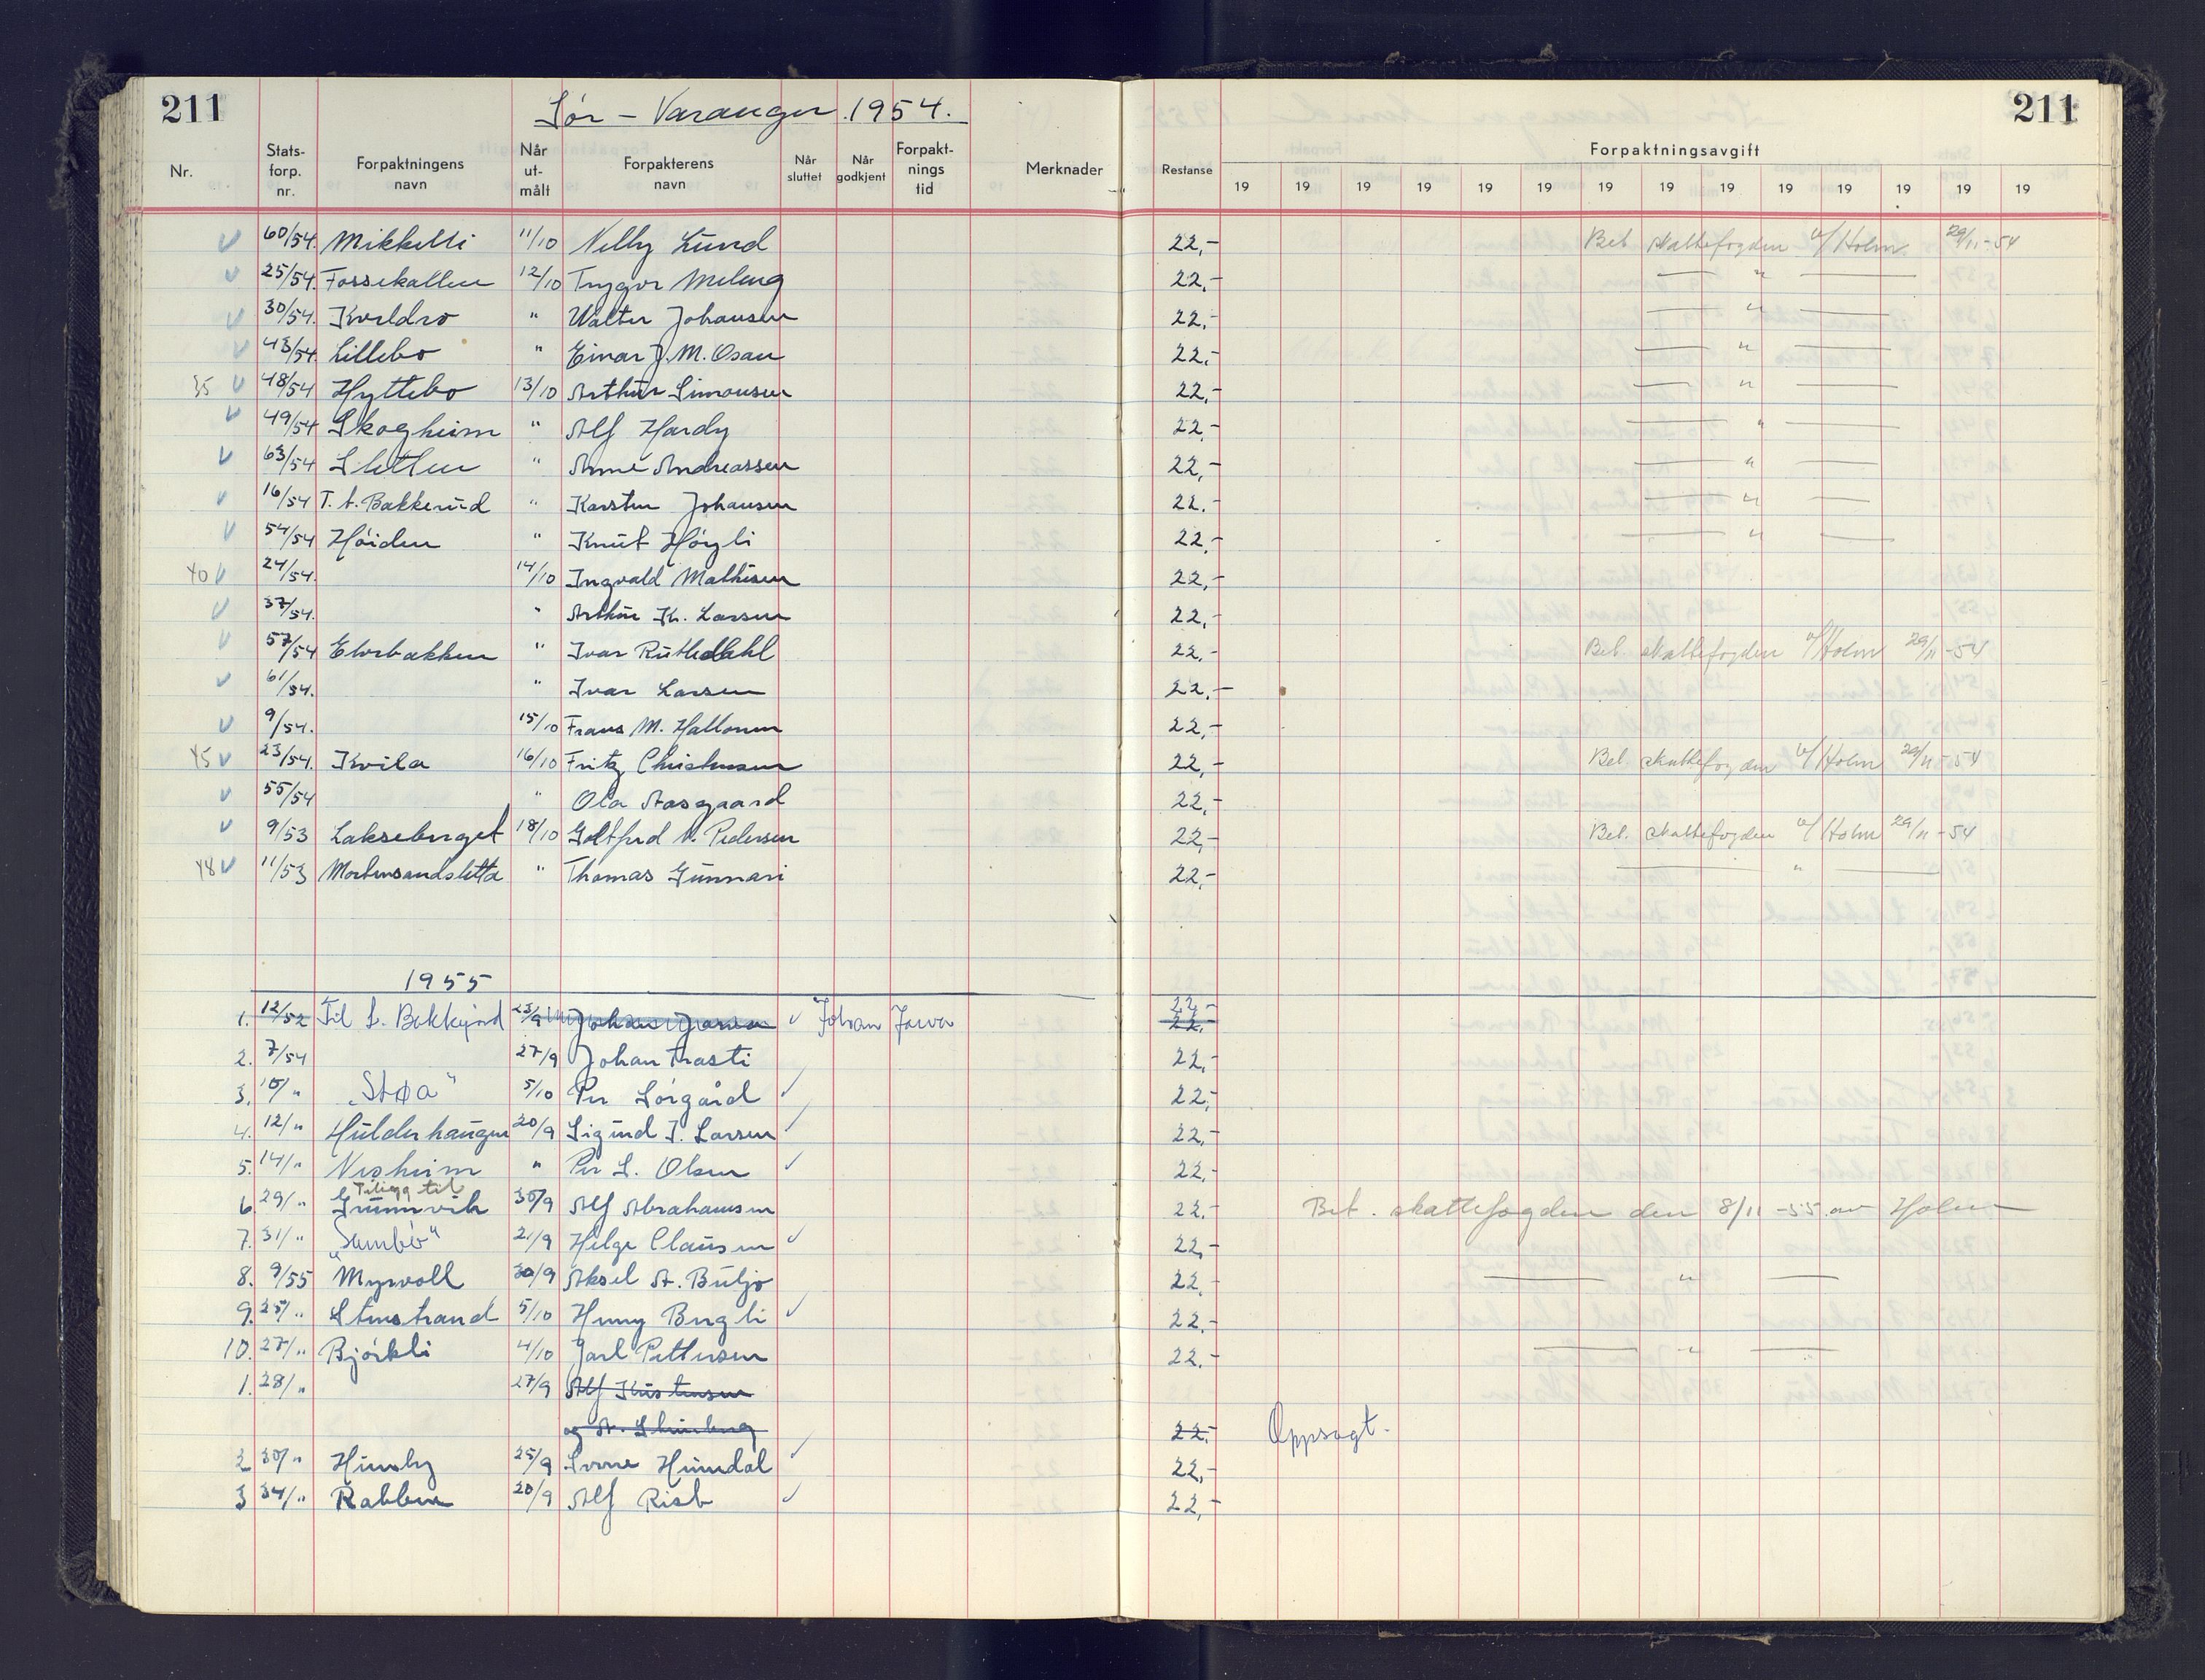 211 Sør - Varanger 1954. 211
Nr. Stats-forp. nr. Forpaktningens navn Når ut-målt Forpakterens navn Når sluttet Når godkjent Forpakt-nings tid Merknader Restanse Forpaktningsavgift
19 19 19 19 19 19 19 19 19 19 19 19 19 19
60/54. Mikkelli 11/10 Nelly Lund 22,- Bet. skattefogden v/Holm 29/11-54
25/54. Fossekallen 12/10 Trygve Meleng 22,- — " —
30/54. Kveldro " Walter Johansen 22,- — " —
43/54. Lillebo " Einar J. M. Osan 22,- — " —
35 48/54 Hyttebo 13/10 Arthur Simonsen 22,- — " —
49/54 Skogheim " Alf Hardy 22,- — " —
63/54 Sletten " Arne Andreassen 22,- — " —
16/54 T. t. Bakkerud " Karsten Johansen 22.- — " —
54/54 Høiden " Knut Høgli 22,- — " —
40 24/54. 14/10 Ingvald Mathisen 22,-
37/54. " Arthur K. Larsen 22,-
57/54 Elvebakken " Ivar Ruthedahl 22,- Bet. skattefogden v/Holm 29/11-54
61/54. " Ivar Larsen 22,-
9/54. 15/10 Frans M. Hallonen 22,-
45 23/54. Kvila 16/10 Fritz Christensen 22,- Bet skattefogden v/Holm 29/11-54
55/54 " Ola Aasgaard 22,-
9/53 Lakseberget 18/10 Gottfred N. Pedersen 22,- Bet. skattefogden v/Holm 29/11-54
48 11/53 Mortensandsletta " Thomas Gunnari 22,- — " —
1955
1. 12/52 Til L. Bakkejord 23/9 Johan Jarva 22,-
22,-
2. 7/54 27/9 Johan Trasti 22,-
3. 10/" "Støa" 5/10 Per Sørgård 22,-
4. 12/" Hulderhaugen 20/9 Sigurd J. Larsen 22,-
5. 14/" Nesheim " Per L. Olsen 22,-
6. 29/" Tillegg til Grunnvik 30/9 Alf Abrahamsen 22,- Bet. skattefogden den 8/11-55 av Holm
7. 31/" "Sambo" 21/9 Helge Clausen 22,-
8. 9/55 Myrvoll 30/9 Aksel A. Buljo 22. — " —
9. 25/" Stenstrand 5/10 Henry Bergli 22.-
10. 27/" Bjørkli 4/10 Jarl Pettersen 22.- — " —
1. 28/" 27/9 Alf Kristensen
og A. 22,- Oppsagt.
2 30/" Humly 25/9 Sverre Humdal 22,-
3 34/" Rabben 20/9 Alf Risb 22,-